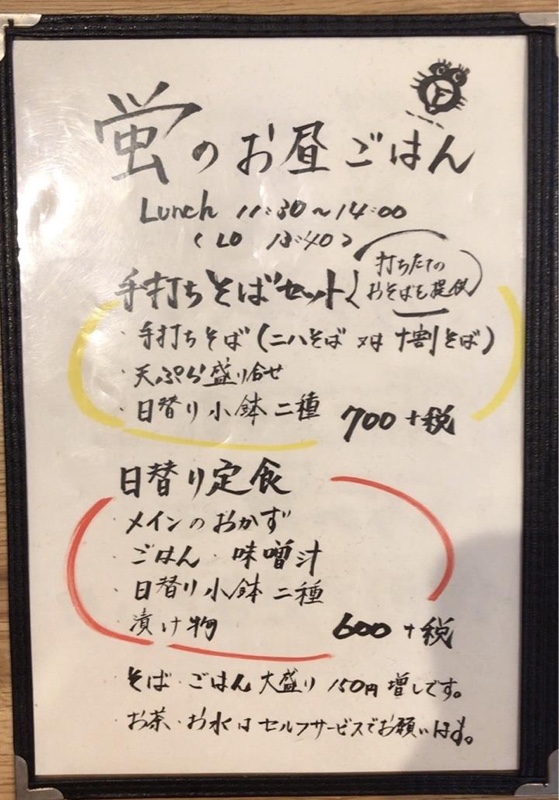 蛍のお昼ごはん
Lunch 11:30～14:00
(LO 13:40)
手打ちそばセット
打ちたての
おそばを提供
・手打ちそば(二八そば 又は 十割そば)
・天ぷら盛り合せ
・日替り小鉢二種 700+税
日替り定食
・メインのおかず
・ごはん・味噌汁
・日替り小鉢二種
・漬け物 600+税
・そば・ごはん大盛り150円増しです。
・お茶・お水はセルフサービスでお願いします。